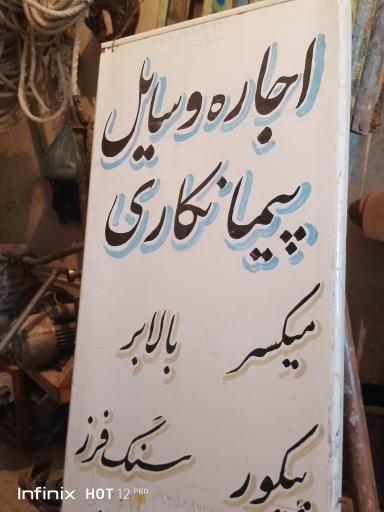 اجاره وسایل
پیمانکاری
میکسر بالابر
پیکور سنگ فرز
Infinix HOT 12 PRO